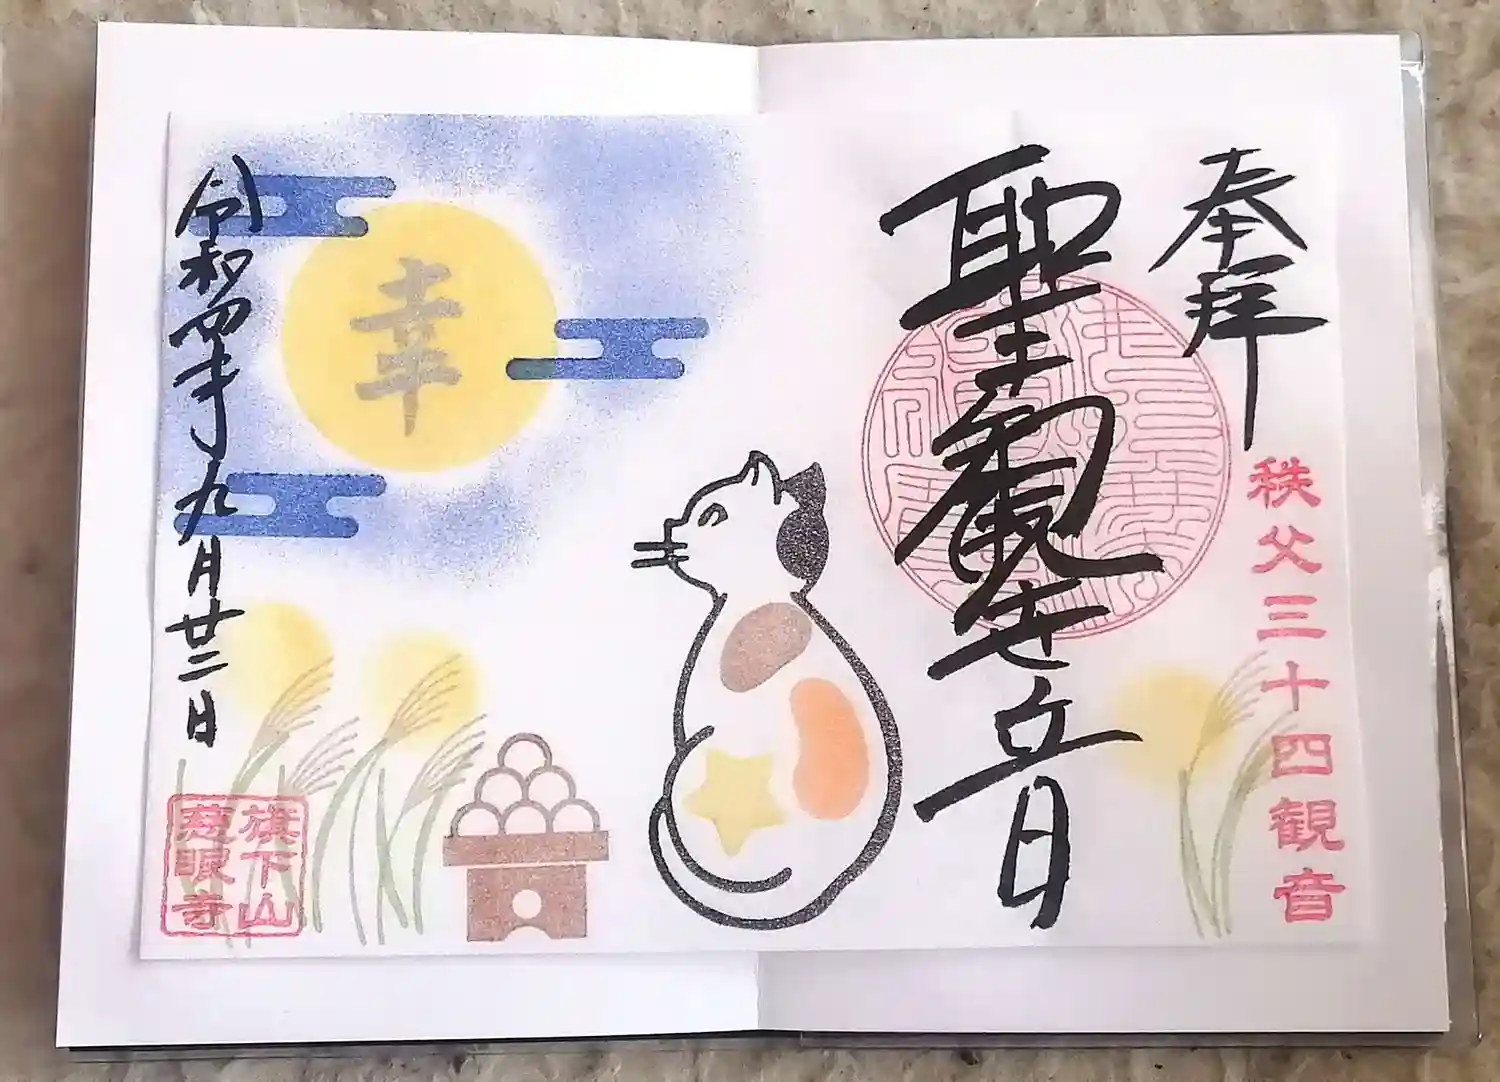 奉拝
秩父三十四観音
聖観世音
幸
令和四年九月廿二日
旗下山
慈眼寺